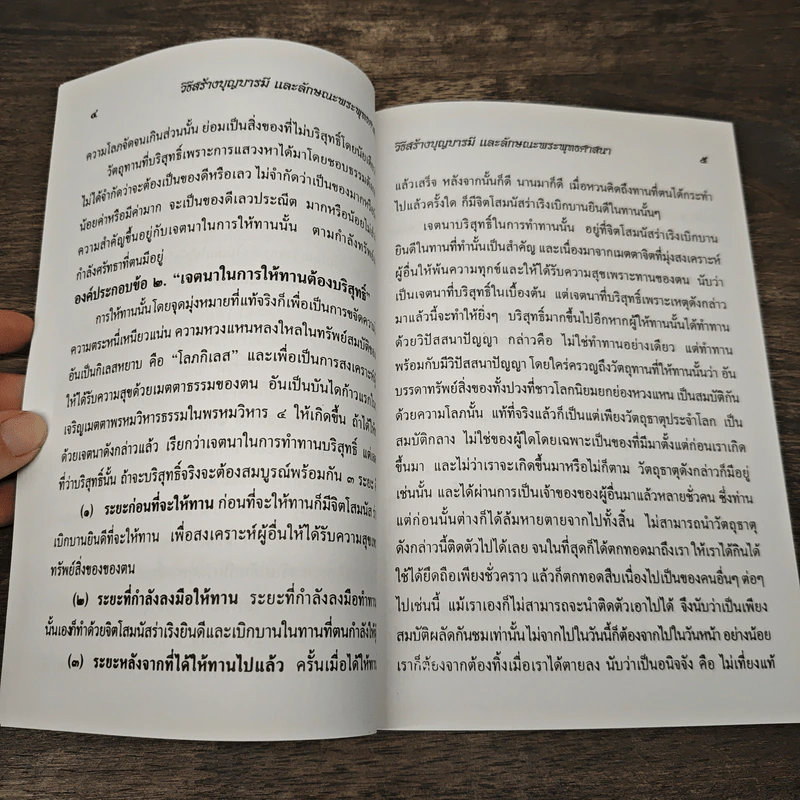 ๔
วิธีสร้างบุญบารมี และลักษณะพระพุทธ
ความโลภจัดจนเกินส่วนนั้น ย่อมเป็นสิ่งของที่ไม่บริสุทธิ์โดยนัยเดียว
วัตถุทานที่บริสุทธิ์เพราะการแสวงหาได้มาโดยชอบธรรม
ไม่ได้จำกัดว่าจะต้องเป็นของดีหรือเลว ไม่จำกัดว่าเป็นของมาก
น้อยค่าหรือมีค่ามาก จะเป็นของดีเลวประณีต มากหรือน้อยไม่
ความสำคัญขึ้นอยู่กับเจตนาในการให้ทานนั้น ตามกำลังทรัพย์
กำลังศรัทธาที่ตนมีอยู่
องค์ประกอบข้อ ๒. “เจตนาในการให้ทานต้องบริสุทธิ์”
การให้ทานนั้นโดยจุดมุ่งหมายที่แท้จริงก็เพื่อเป็นการขจัดความ
ความตระหนี่เหนียวแน่น ความหวงแหนหลงใหลในทรัพย์สมบัติของ
อันเป็นกิเลสหยาบ คือ “โลภกิเลส” และเพื่อเป็นการสงเคราะห์ผู้
ให้ได้รับความสุขด้วยเมตตาธรรมของตน อันเป็นบันไดก้าวแรก
เจริญเมตตาพรหมวิหารธรรมในพรหมวิหาร ๔ ให้เกิดขึ้น ถ้าได้ให้
ด้วยเจตนาดังกล่าวแล้ว เรียกว่าเจตนาในการทำทานบริสุทธิ์ แต่
ที่ว่าบริสุทธิ์นั้น ถ้าจะบริสุทธิ์จริงจะต้องสมบูรณ์พร้อมกัน ๓ ระยะ
(๑) ระยะก่อนที่จะให้ทาน ก่อนที่จะให้ทานก็มีจิตโสมนัส
เบิกบานยินดีที่จะให้ทาน เพื่อสงเคราะห์ผู้อื่นให้ได้รับความสุข
ทรัพย์สิ่งของของตน
(๒) ระยะที่กำลังลงมือให้ทาน ระยะที่กำลังลงมือทำทาน
นั้นเองก็ทำด้วยจิตโสมนัสร่าเริงยินดีและเบิกบานในทานที่ตนกำลังให้
(๓) ระยะหลังจากที่ได้ให้ทานไปแล้ว ครั้นเมื่อได้ให้ทาน
วิธีสร้างบุญบารมี และลักษณะพระพุทธศาสนา
๕
แล้วเสร็จ หลังจากนั้นก็ดี นานมาก็ดี เมื่อหวนคิดถึงทานที่ตนได้กระทำ
ไปแล้วครั้งใด ก็มีจิตโสมนัสร่าเริงเบิกบานยินดีในทานนั้นๆ
เจตนาบริสุทธิ์ในการทำทานนั้น อยู่ที่จิตโสมนัสร่าเริงเบิกบาน
ยินดีในทานที่ทำนั้นเป็นสำคัญ และเนื่องมาจากเมตตาจิตที่มุ่งสงเคราะห์
ผู้อื่นให้พ้นความทุกข์และให้ได้รับความสุขเพราะทานของตน นับว่า
เป็นเจตนาที่บริสุทธิ์ในเบื้องต้น แต่เจตนาที่บริสุทธิ์เพราะเหตุดังกล่าว
มาแล้วนี้จะทำให้ยิ่งๆ บริสุทธิ์มากขึ้นไปอีกหากผู้ให้ทานนั้นได้ทำทาน
ด้วยวิปัสสนาปัญญา กล่าวคือ ไม่ใช่ทำทานอย่างเดียว แต่ทำทาน
พร้อมกับมีวิปัสสนาปัญญา โดยใคร่ครวญถึงวัตถุทานที่ให้ทานนั้นว่า อัน
บรรดาทรัพย์สิ่งของทั้งปวงที่ชาวโลกนิยมยกย่องหวงแหน เป็นสมบัติกัน
ด้วยความโลภนั้น แท้ที่จริงแล้วก็เป็นแต่เพียงวัตถุธาตุประจำโลก เป็น
สมบัติกลาง ไม่ใช่ของผู้ใดโดยเฉพาะเป็นของที่มีมาตั้งแต่ก่อนเราเกิด
ขึ้นมา และไม่ว่าเราจะเกิดขึ้นมาหรือไม่ก็ตาม วัตถุธาตุดังกล่าวก็มีอยู่
เช่นนั้น และได้ผ่านการเป็นเจ้าของของผู้อื่นมาแล้วหลายชั่วคน ซึ่งท่าน
แต่ก่อนนั้นต่างก็ได้ล้มหายตายจากไปทั้งสิ้น ไม่สามารถนำวัตถุธาตุ
ดังกล่าวนี้ติดตัวไปได้เลย จนในที่สุดก็ได้ตกทอดมาถึงเรา ให้เราได้กินได้
ใช้ได้ยึดถือเพียงชั่วคราว แล้วก็ตกทอดสืบเนื่องไปเป็นของคนอื่นๆ ต่อๆ
ไปเช่นนี้ แม้เราเองก็ไม่สามารถจะนำติดตัวเอาไปได้ จึงนับว่าเป็นเพียง
สมบัติผลัดกันชมเท่านั้น ไม่จากไปในวันนี้ก็ต้องจากไปในวันหน้า อย่างน้อย
เราก็ต้องจากต้องทิ้งเมื่อเราได้ตายลง นับว่าเป็นอนิจจัง คือ ไม่เที่ยงแท้